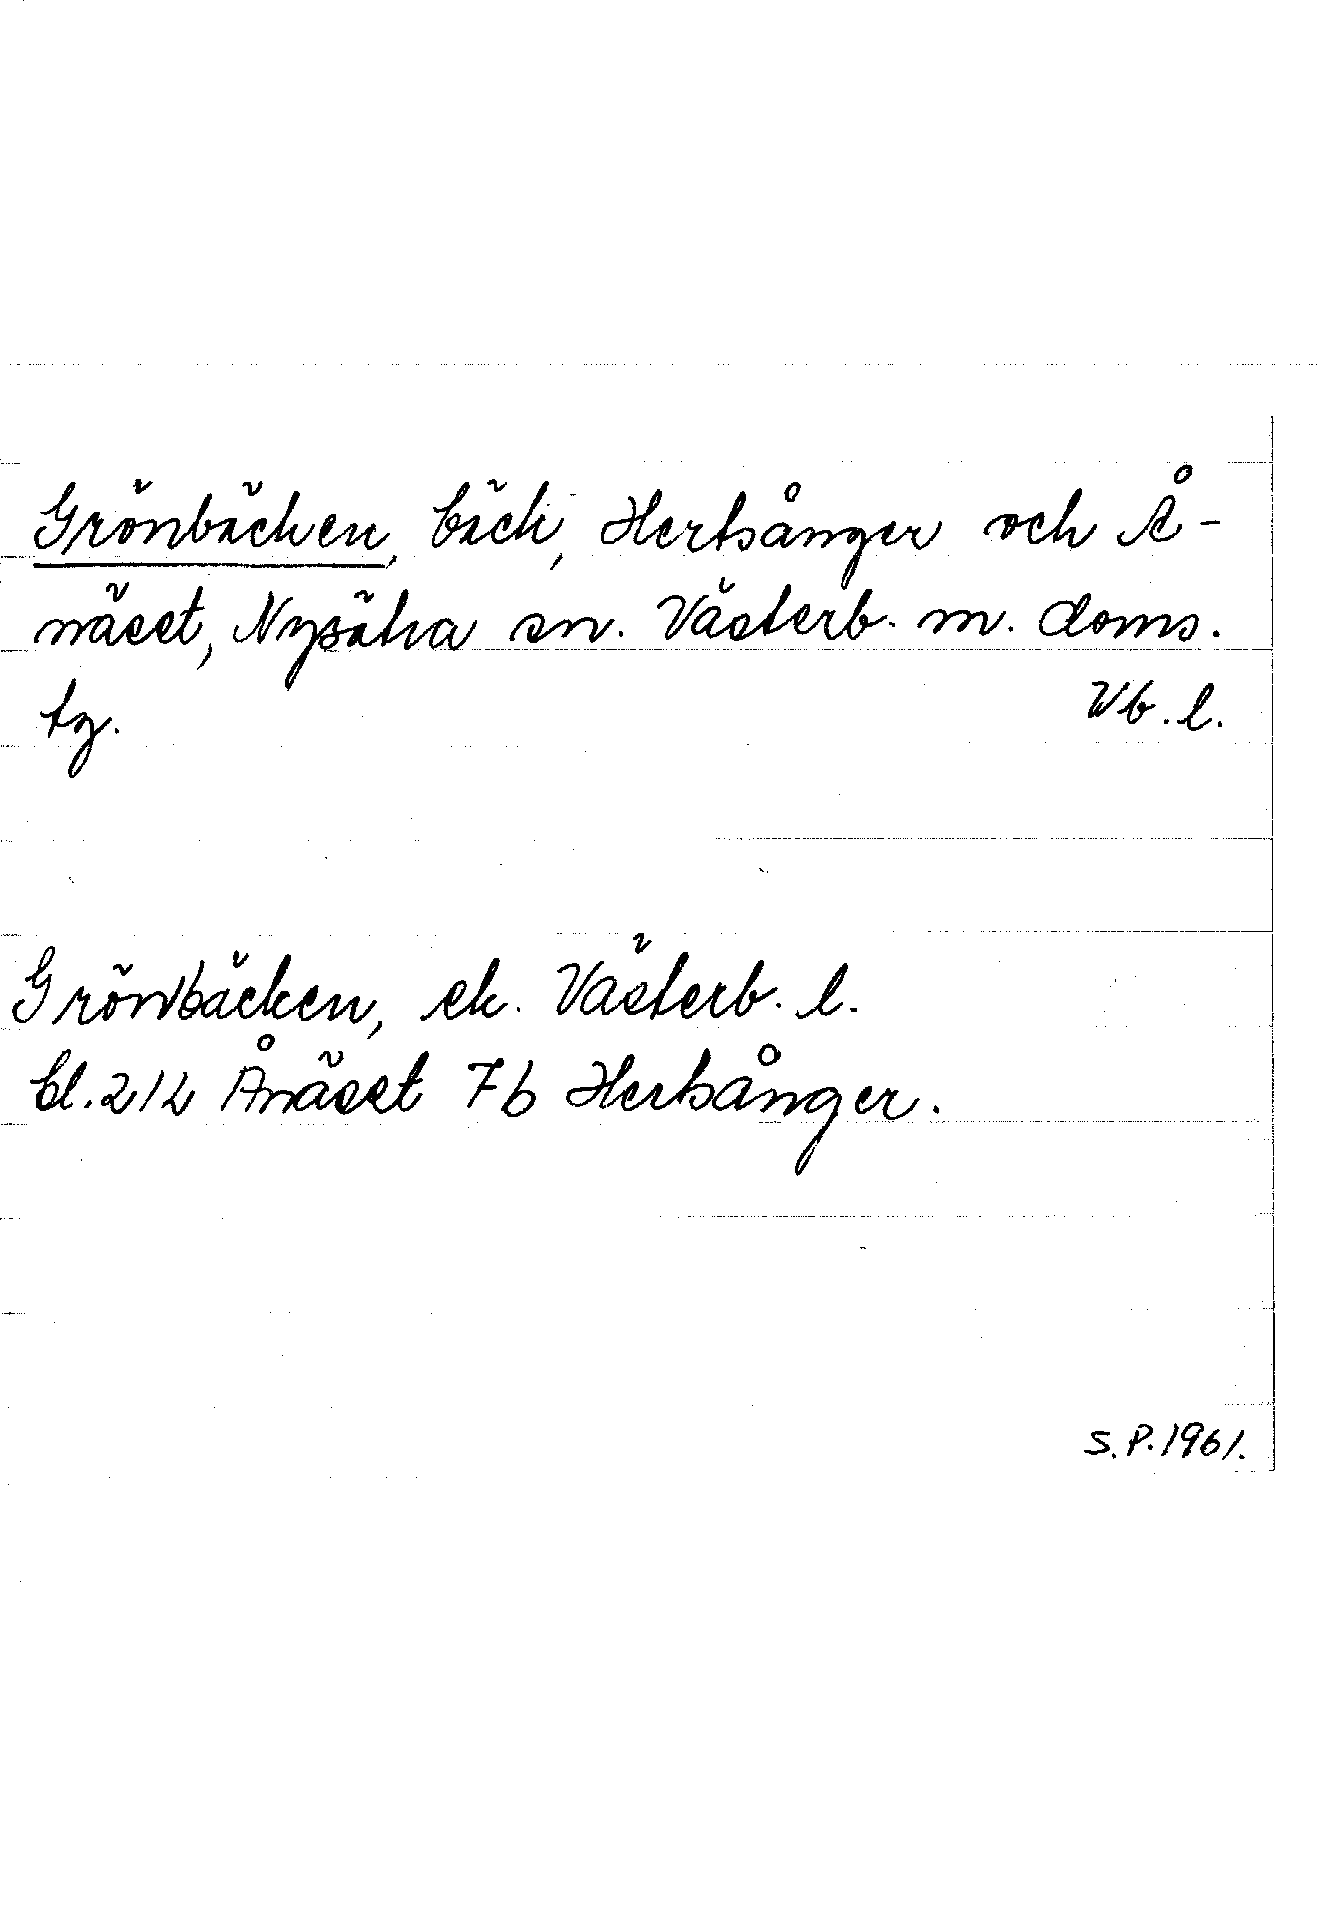 Grönbäcken, bäck, Hertsånger och Å-
näset, Nysätra sn. Västerb. m. doms.
tg. Vb. l.
Grönbäcken, ek. Västerb. l.
bl. 212 Ånäset 7b Hertsånger.
S.P. 1961.